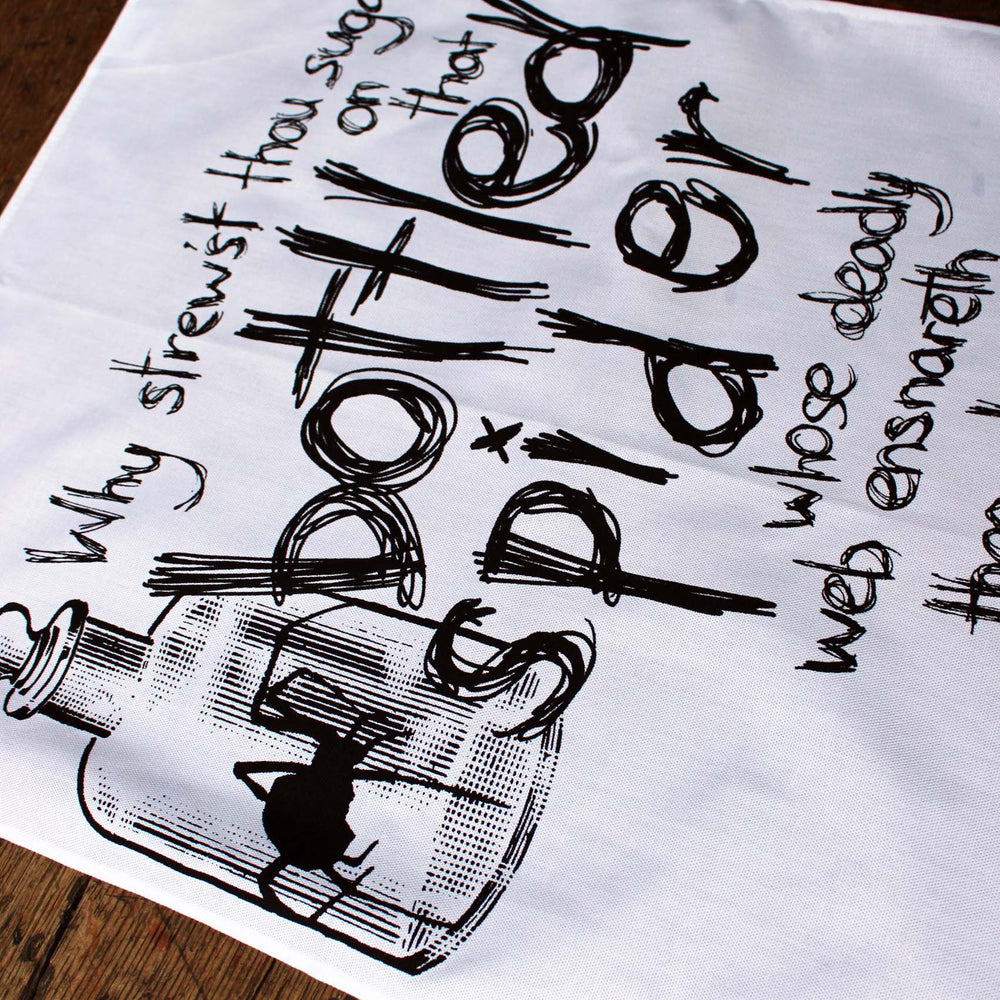 Why strew'st thou suga
on that
bottled
spider
whose deadly
web ensnareth